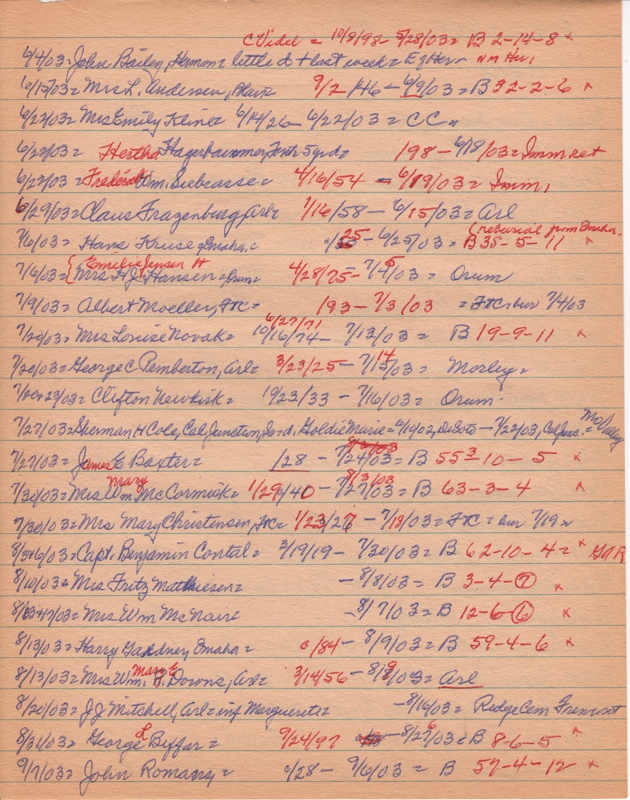 C Videl = 10/8/98 - 5/28/03 = B 2-14-8 x
6/4/03 = John Bailey, Hermon = little d + last week = Ez Her N M Her,
6/15/03 = Mrs L. Andersen, Blair 9/2/46 - 6/9/03 = B 32-2-6 x
6/22/03 = Mrs Emily 6/14/26 - 6/22/03 = CC
6/22/03 = Hertha 5 grd = 198 - 6/18/03 = Imm
6/22/03 = Frederick Wm. Siebrasse = 4/16/54 - 6/19/03 = Imm,
6/29/03 = Claus Frazenburg Arl = 7/16/58 - 6/15/03 = Arl
7/6/03 = Hans Kruse Omaha, = 25 - 6/25/03 = B 38-5-11 x (reburial from Omaha,
7/6/03 = { Emelie Jensen H Mrs H J Hansen = Orum = 4/28/75 - 7/5/03 = Orum
7/9/03 = Albert Moeller, FtC = 193 - 7/3/03 = FtC bur 7/4/03
7/20/03 = Mrs Louise Novak = 6/27/71 10/16/74 - 7/13/03 = B 19-9-11 x
7/20/03 = George C Pemberton, Arl = 3/23/25 - 7/14/03 = Morley =
7/20+23/03 = Clifton Newkirk = 10/23/33 - 7/16/03 = Orum
7/27/03 = Sherman H Cole, Cal Junction, Ia = d. Goldie Marie = 9/10/02, DeSoto - 7/22/03, Cal Junc. = Mo Valley
7/27/03 = James E Baxter = 1/28 - 7/24/03 = B 55-10-5 x
7/30/03 = Mrs Wm Mary McCormick = 1/29/40 - 7/27/03 = B 63-3-4 x
7/30/03 = Mrs Mary Christensen, FtC = 1/23/27 - 7/18/03 = FtC = bur 7/19
8/3+6/03 = Capt. Benjamin Contal = 3/19/19 - 7/30/03 = B 62-10-4 = x GAR
8/10/03 = Mrs Fritz Matthiesen = - 8/8/03 = B 3-4-7 x
8/13+17/03 = Mrs Wm McNair - 8/7/03 = B 12-6-6 x
8/13/03 = Harry Gardner, Omaha = c/84 - 8/9/03 = B 59-4-6 x
8/13/03 = Mrs Wm. Mary E Downs, Arl = 3/14/56 - 8/9/03 = Arl
8/20/03 = J J Mitchell, Arl = inf Marguerite = - 8/16/03 = Ridge Cem Fremont
8/31/03 = George L Byffar = 9/24/97 - 8/26/03 = B 8-6-5 x
9/7/03 = John Romans = c/28 - 9/6/03 = B 57-4-12 x